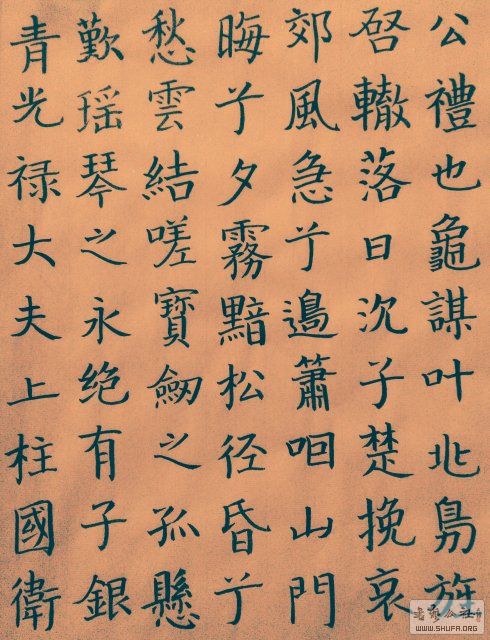 公禮也龜謀叶兆鳥
啓轍落日沉子楚挽哀
郊風急兮邉簫咽山門
晦兮夕霧黯松径昏兮
愁雲結嗟寶劒之孤懸
歎瑶琴之永绝有子銀
青光禄大夫上柱國衛
WWW.SHUFA.ORG